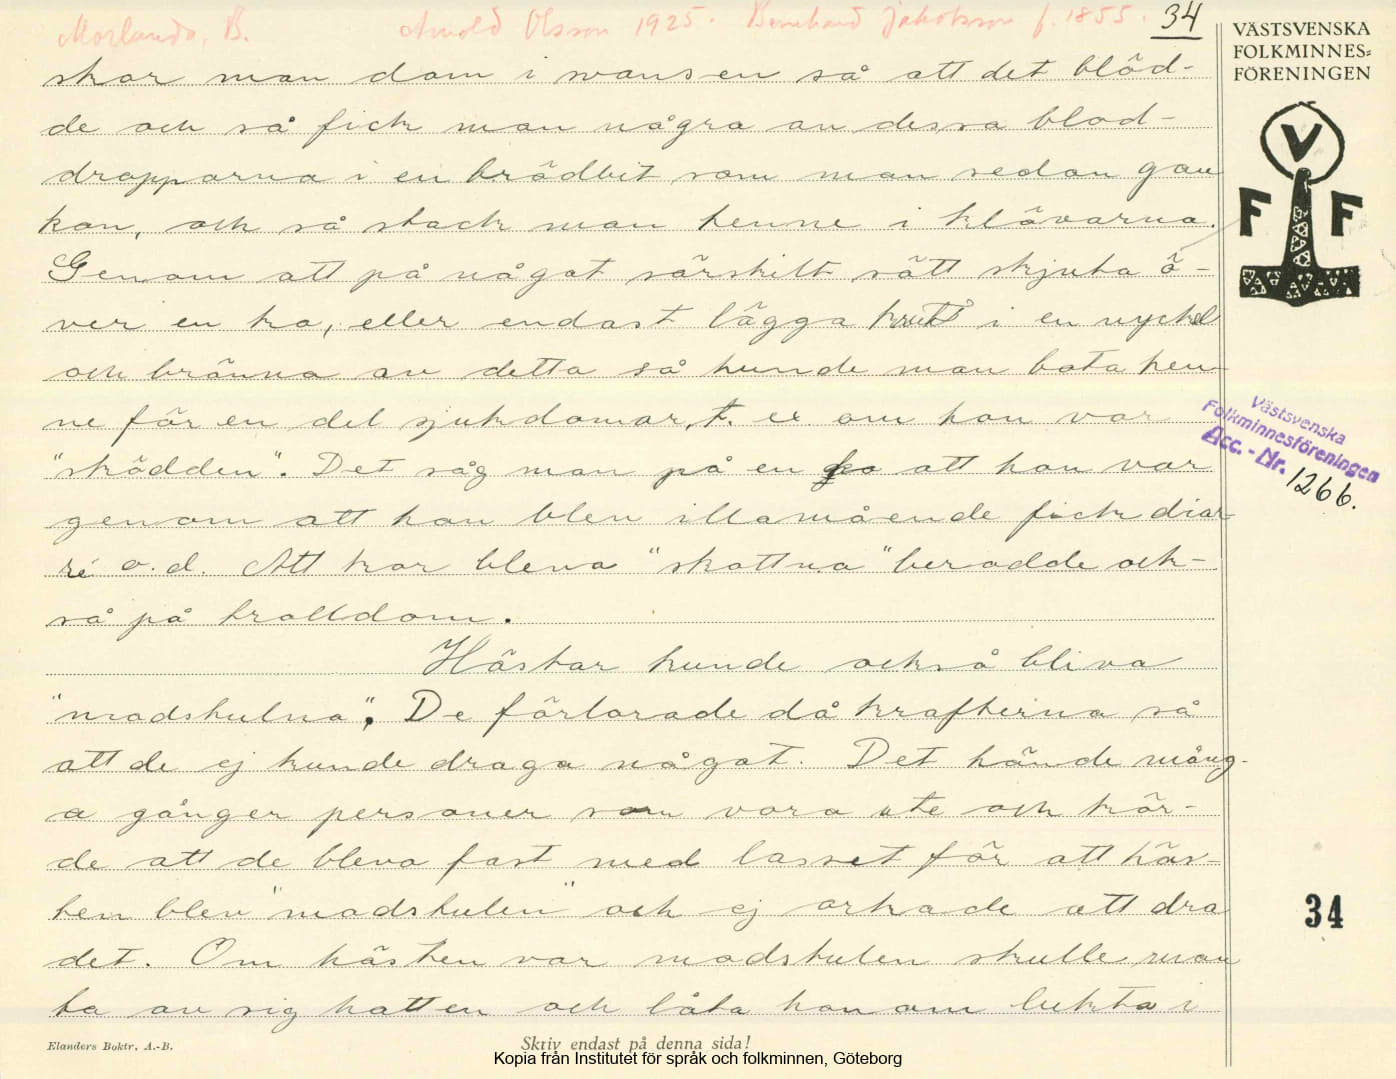 Morlanda, B. Arnold Olsson 1925. Bernhard Jakobsson f. 1855. 34
VÄSTSVENSKA
FOLKMINNES=
FÖRENINGEN
V
F F
skar man dom i svansen så att det blöd-
de och så fick man några av dessa blod-
dropparna i en brödbit som man sedan gav
kon, och så stack man henne i klövarna.
Genom att på något särskilt sätt skjuta ö-
ver en ko, eller endast lägga krutt i en nyckel
och bränna av detta så kunde man bota hen-
ne för en del sjukdomar, t. ex om hon var
"sködden". Det såg man på en ko att hon var
genom att hon blev illamående fick diar-
ré o.d. Att kor bleva "skottna" berodde ock-
så på trolldom.
Hästar kunde också bliva
"modstulna". De förlorade då krafterna så
att de ej kunde draga något. Det hände mång-
a gånger personer som voro ute och kör-
de att de bleva fast med lasset för att häs-
ten blev "modstulen" och ej orkade att dra
det. Om hästen var modstulen skulle man
ta av sig hatten och låta honom lukta i
Västsvenska
Folkminnesföreningen
Acc. - Nr. 1266.
34
Elanders Boktr. A.-B.
Skriv endast på denna sida!
Kopia från Institutet för språk och folkminnen, Göteborg